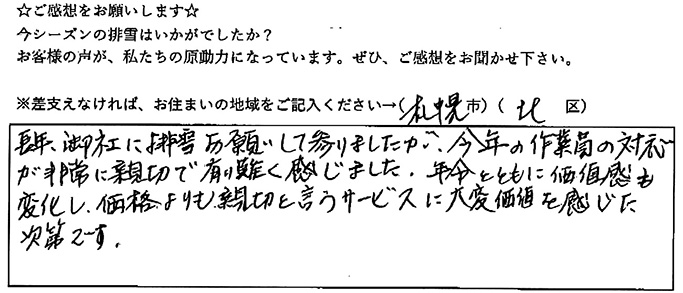 ☆ご感想をお願いします☆
今シーズンの排雪はいかがでしたか？
お客様の声が、私たちの原動力になっています。ぜひ、ご感想をお聞かせ下さい。
※差支えなければ、お住まいの地域をご記入ください→（札幌市）（北区）
長年、御社に排雪お願いして参りましたが、今年の作業員の対応
が非常に親切で有り難く感じました。年令とともに価値感も
変化し、価格よりも親切と言うサービスに大変価値を感じた
次第です。